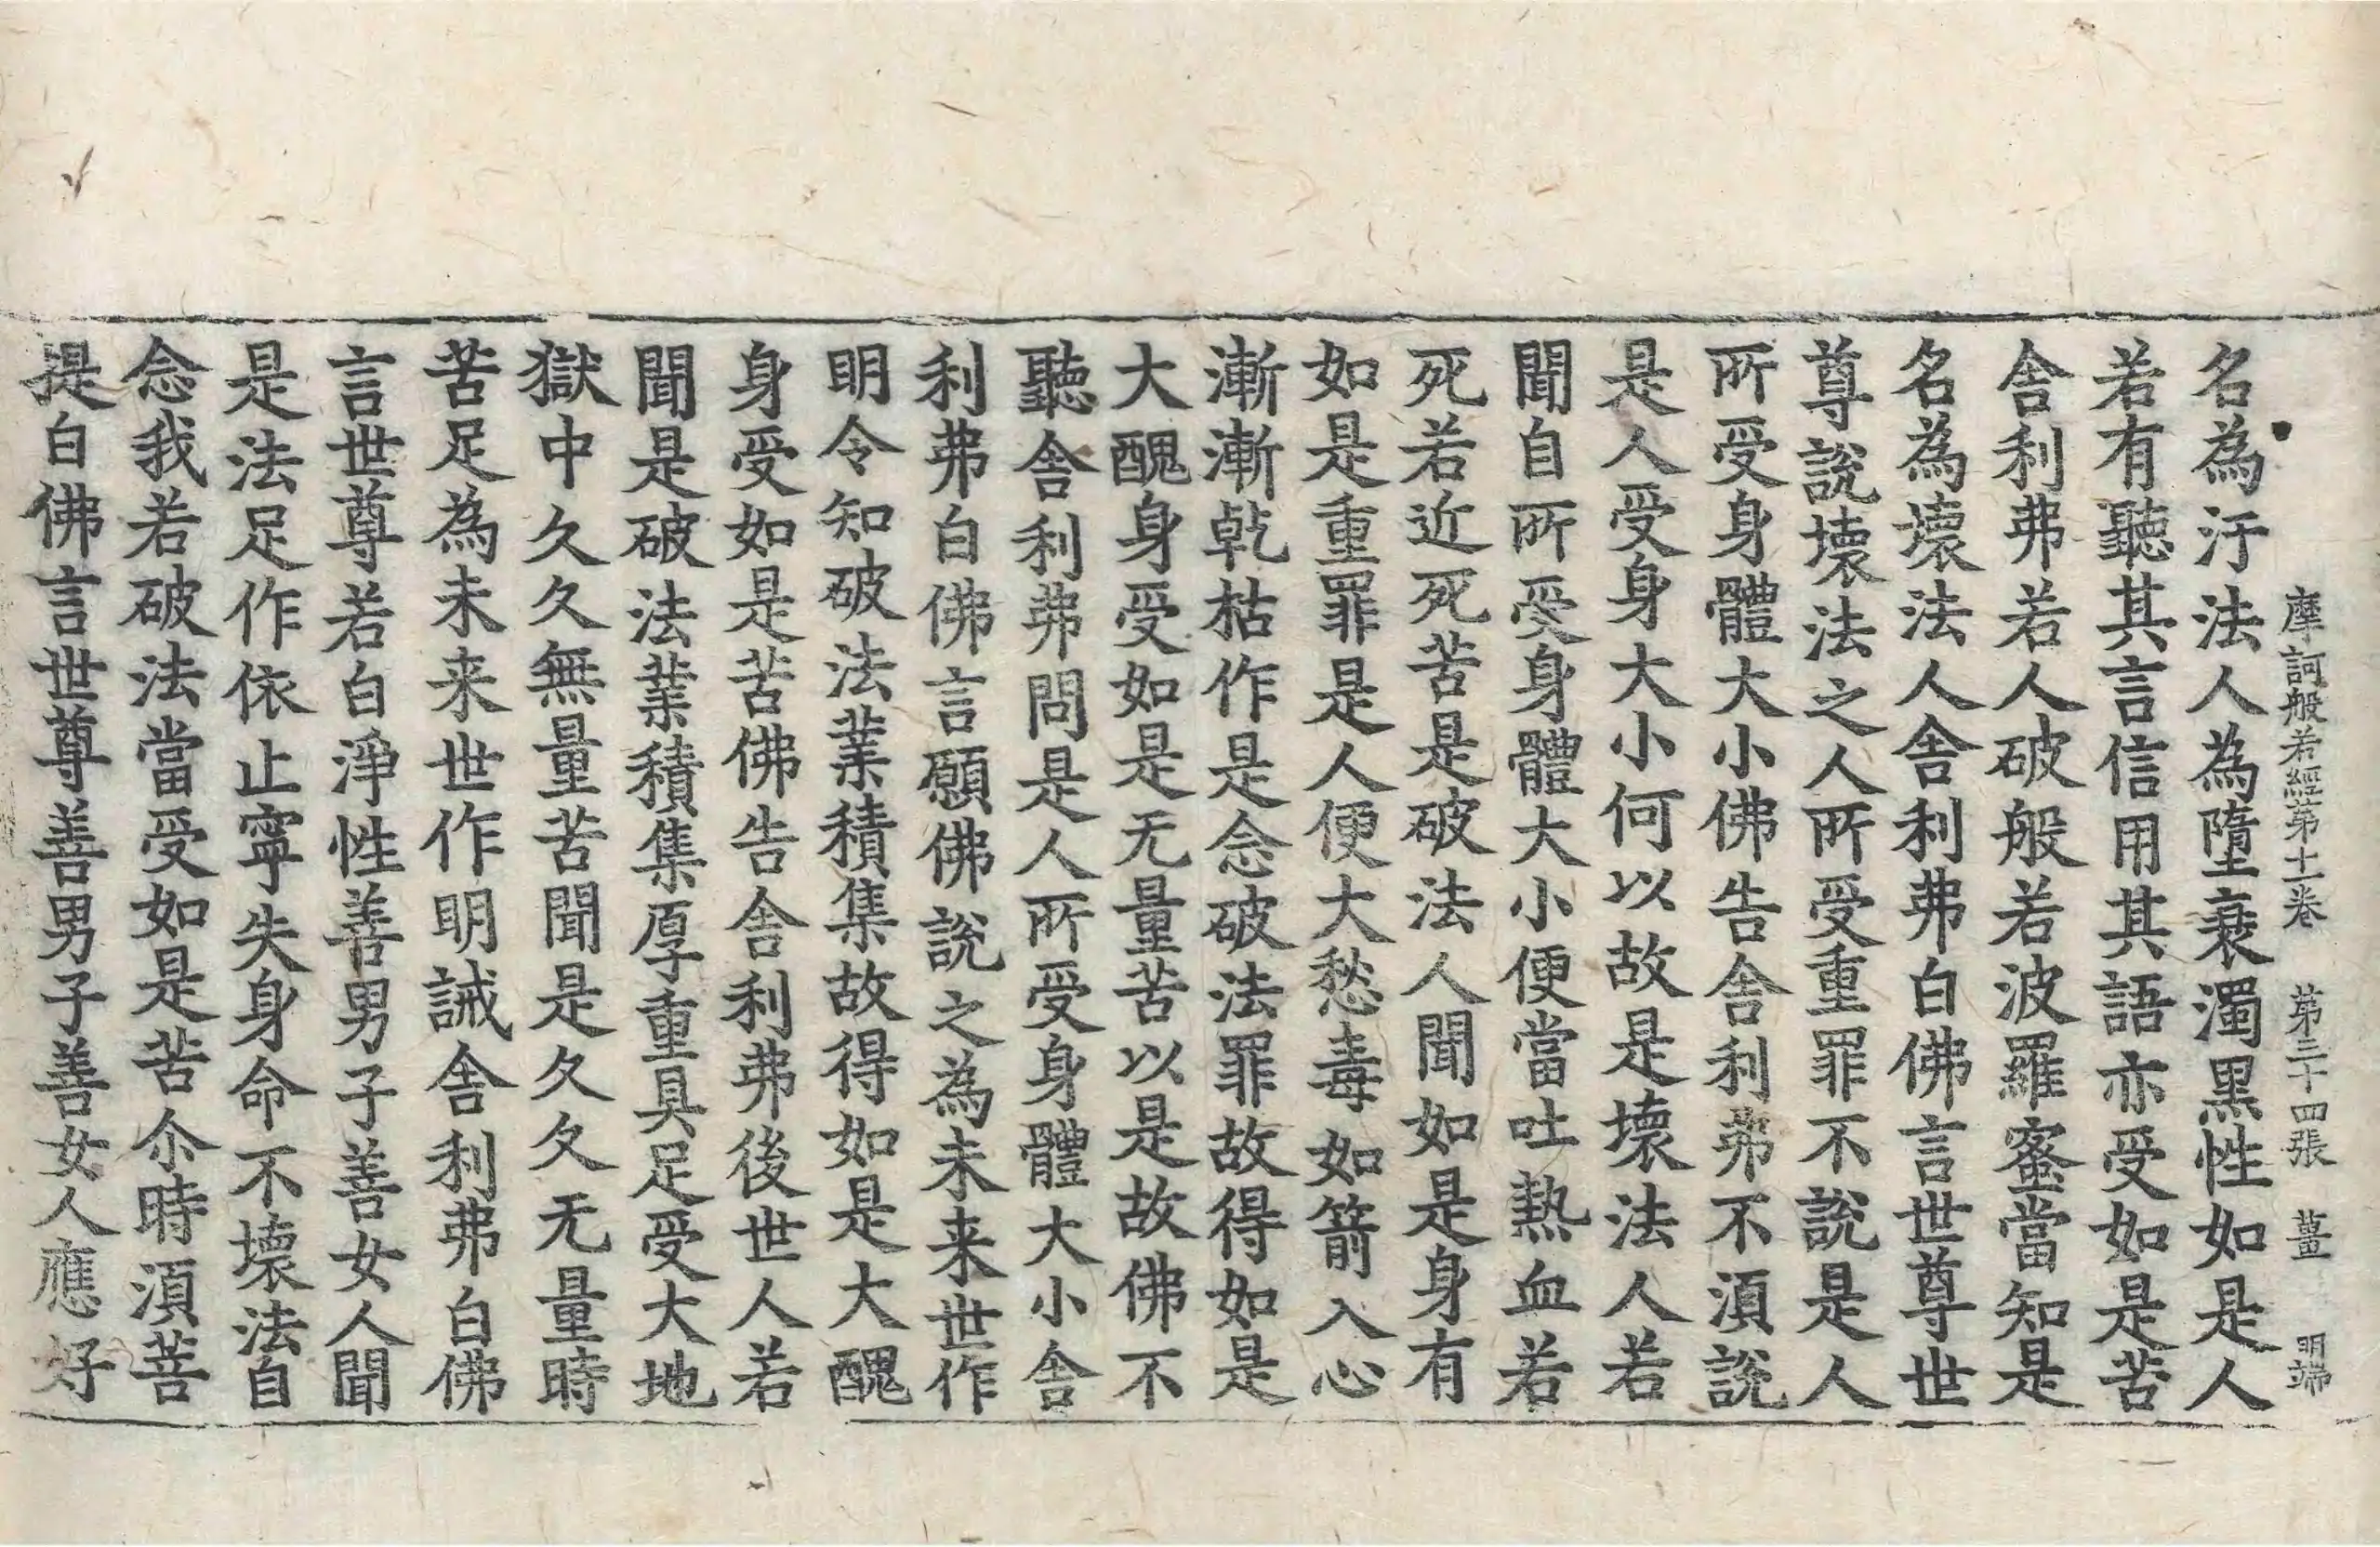 摩訶般若經第十一卷 第三十四張 薑 明端
名為汙法人為墮衰濁黑性如是人
若有聽其言信用其語亦受如是苦
舍利弗若人破般若波羅蜜當知是
名為壞法人舍利弗白佛言世尊世
尊說壞法之人所受重罪不說是人
所受身體大小佛告舍利弗不須說
是人受身大小何以故是壞法人若
聞自所受身體大小便當吐熱血若
死若近死苦是破法人聞如是身有
如是重罪是人便大愁毒如箭入心
漸漸乾枯作是念破法罪故得如是
大醜身受如是无量苦以是故佛不
聽舍利弗問是人所受身體大小舍
利弗白佛言願佛說之為未来世作
明令知破法業積集故得如是大醜
身受如是苦佛告舍利弗後世人若
聞是破法業積集厚重具足受大地
獄中久久無量苦聞是久久无量時
苦足為未来世作明誡舍利弗白佛
言世尊若白淨性善男子善女人聞
是法足作依止寧失身命不壞法自
念我若破法當受如是苦尒時須菩
提白佛言世尊善男子善女人應好